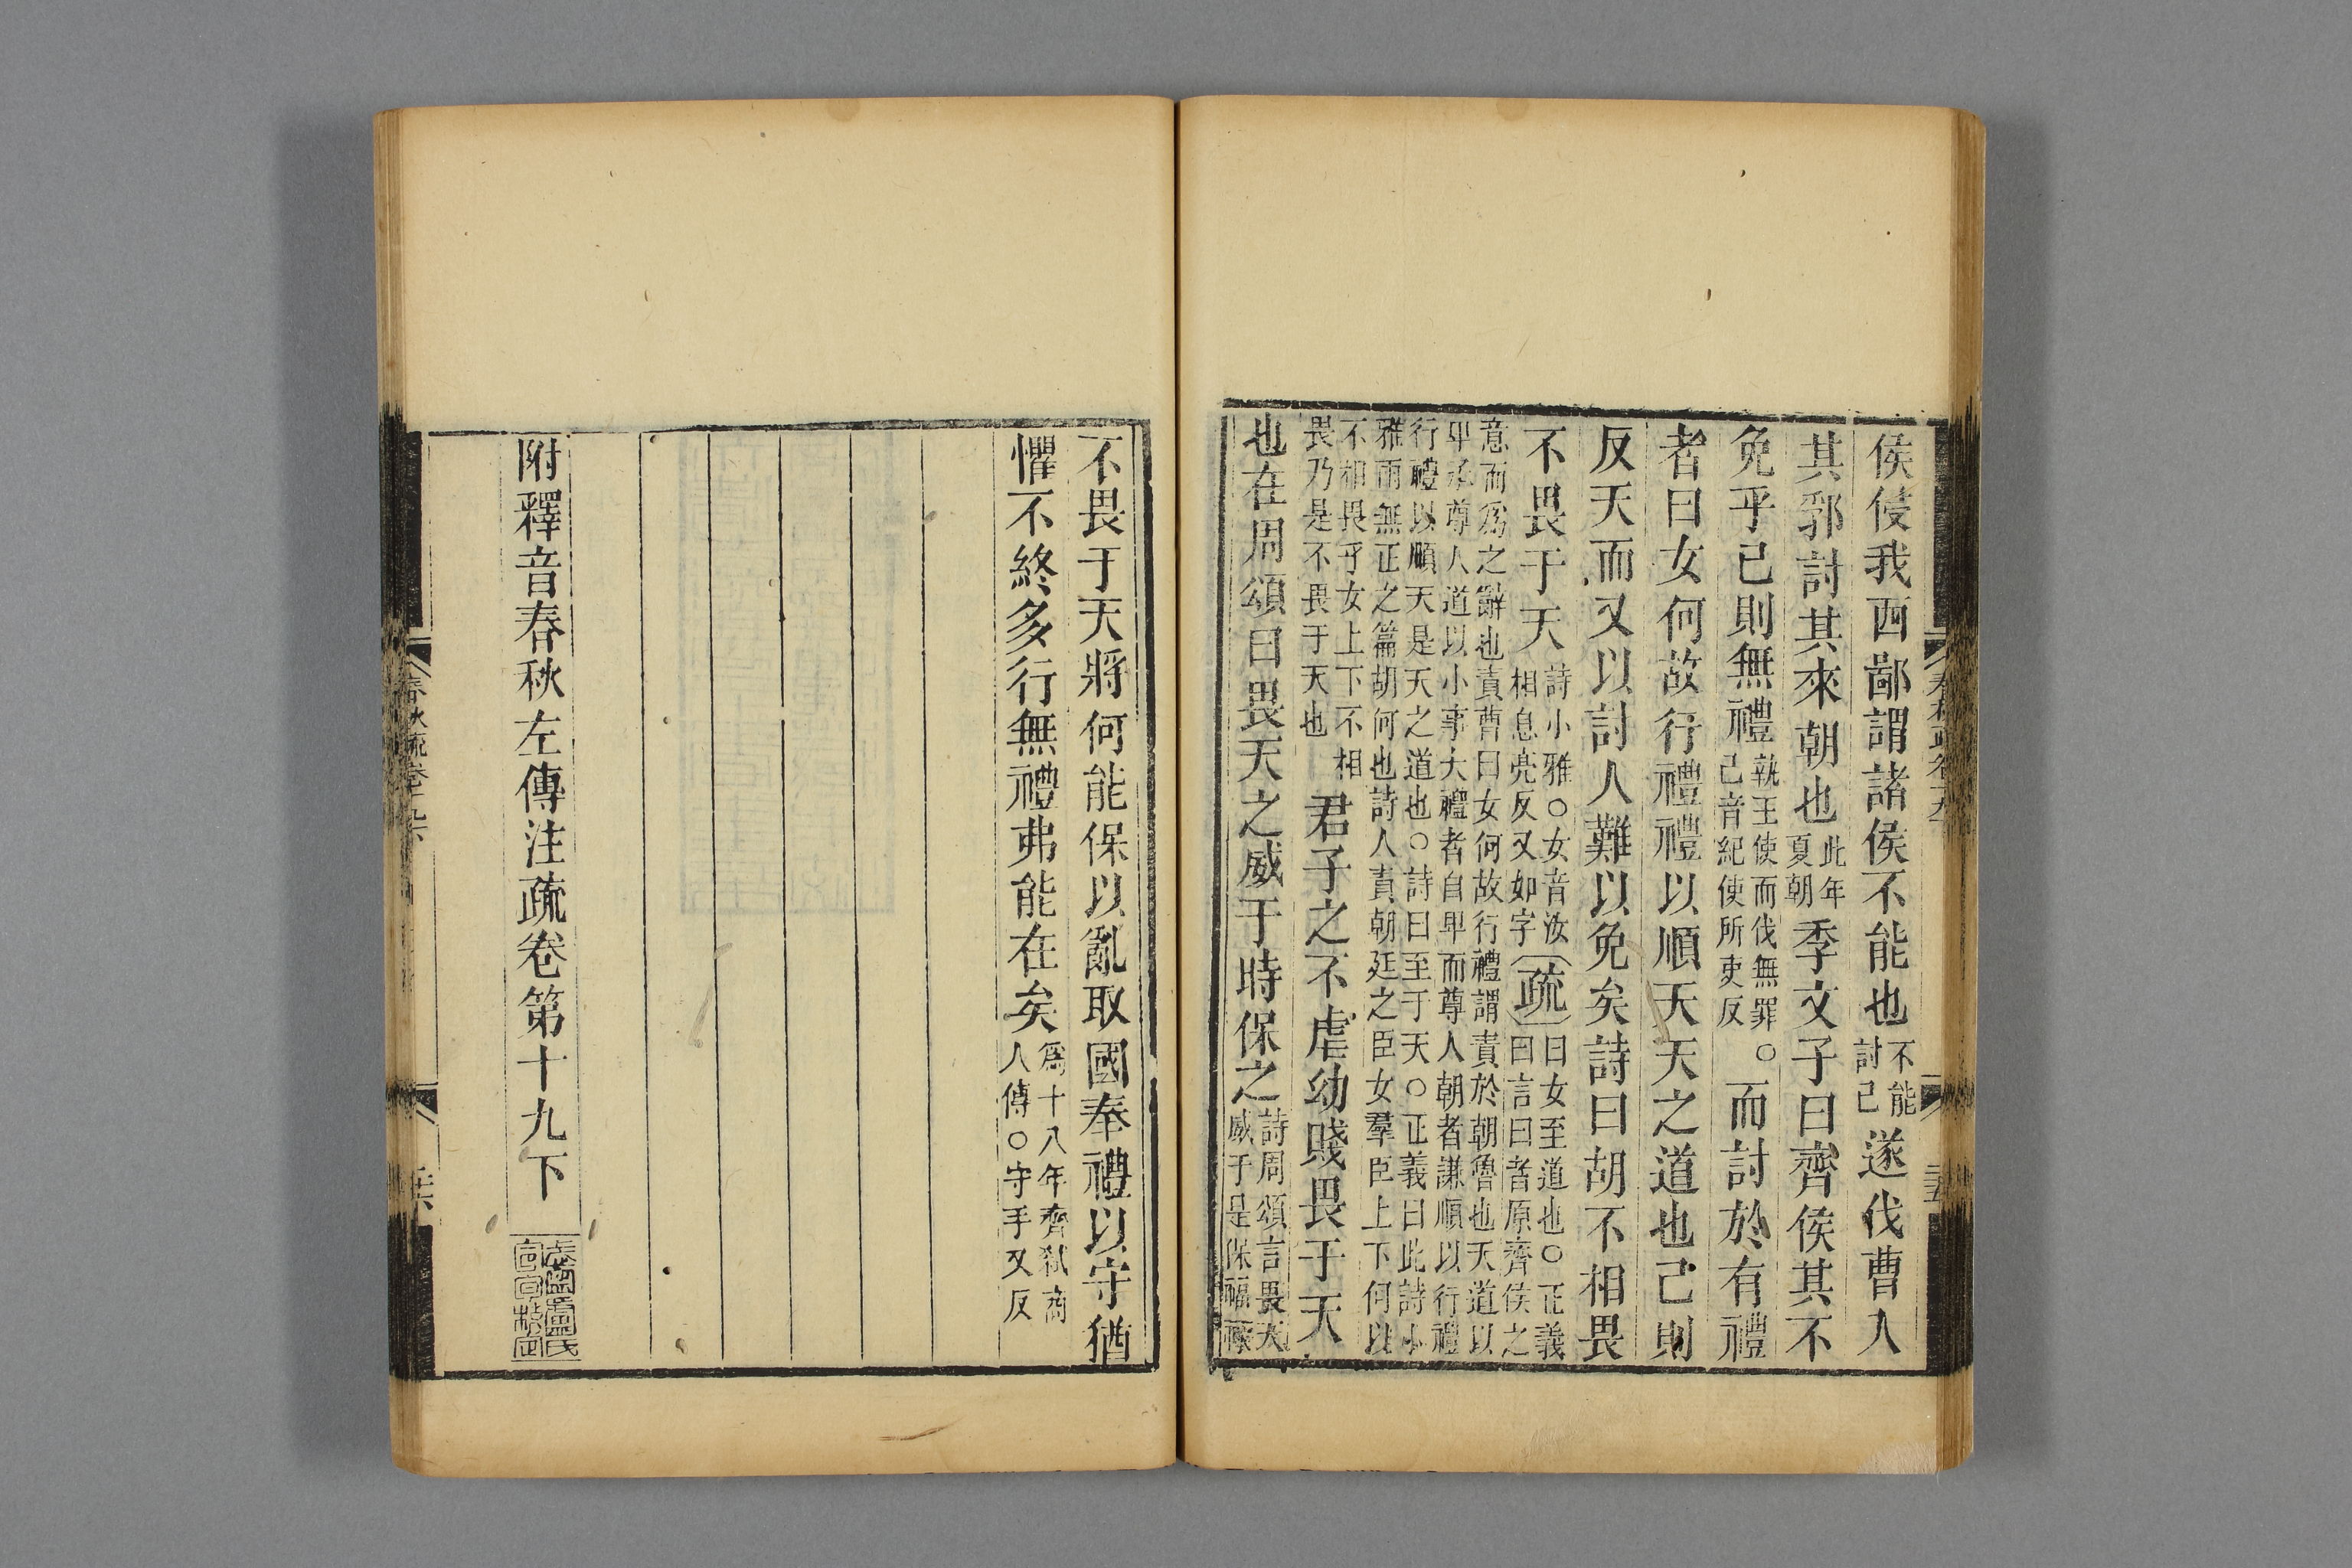 侯侵我西鄙謂諸侯不能也不能討己遂伐曹入
其郛討其來朝也此年夏朝季文子曰齊侯其不
免乎己則無禮執王使而伐無罪○己音紀使所吏反而討於有禮
者曰女何故行禮禮以順天天之道也己則
反天而又以討人難以免矣詩曰胡不相畏
不畏于天詩小雅○女音汝相息亮反又如字疏曰女至道也○正義曰言曰者原齊侯之
意而為之辭也責曹曰女何故行禮謂責於朝魯也天道以
卑承尊人道以小事大禮者自卑而尊人朝者謙順以行禮
行禮以順天是天之道也○詩曰至于天○正義曰此詩小
雅雨無正之篇胡何也詩人責朝廷之臣女羣臣上下何以
不相畏乎女上下不相
畏乃是不畏于天也君子之不虐幼賤畏于天
也在周頌曰畏天之威于時保之詩周頌言畏天威于是保福祿
不畏于天將何能保以亂取國奉禮以守猶
懼不終多行無禮弗能在矣為十八年齊弒商人傳○守手又反
附釋音春秋左傳注疏卷第十九下